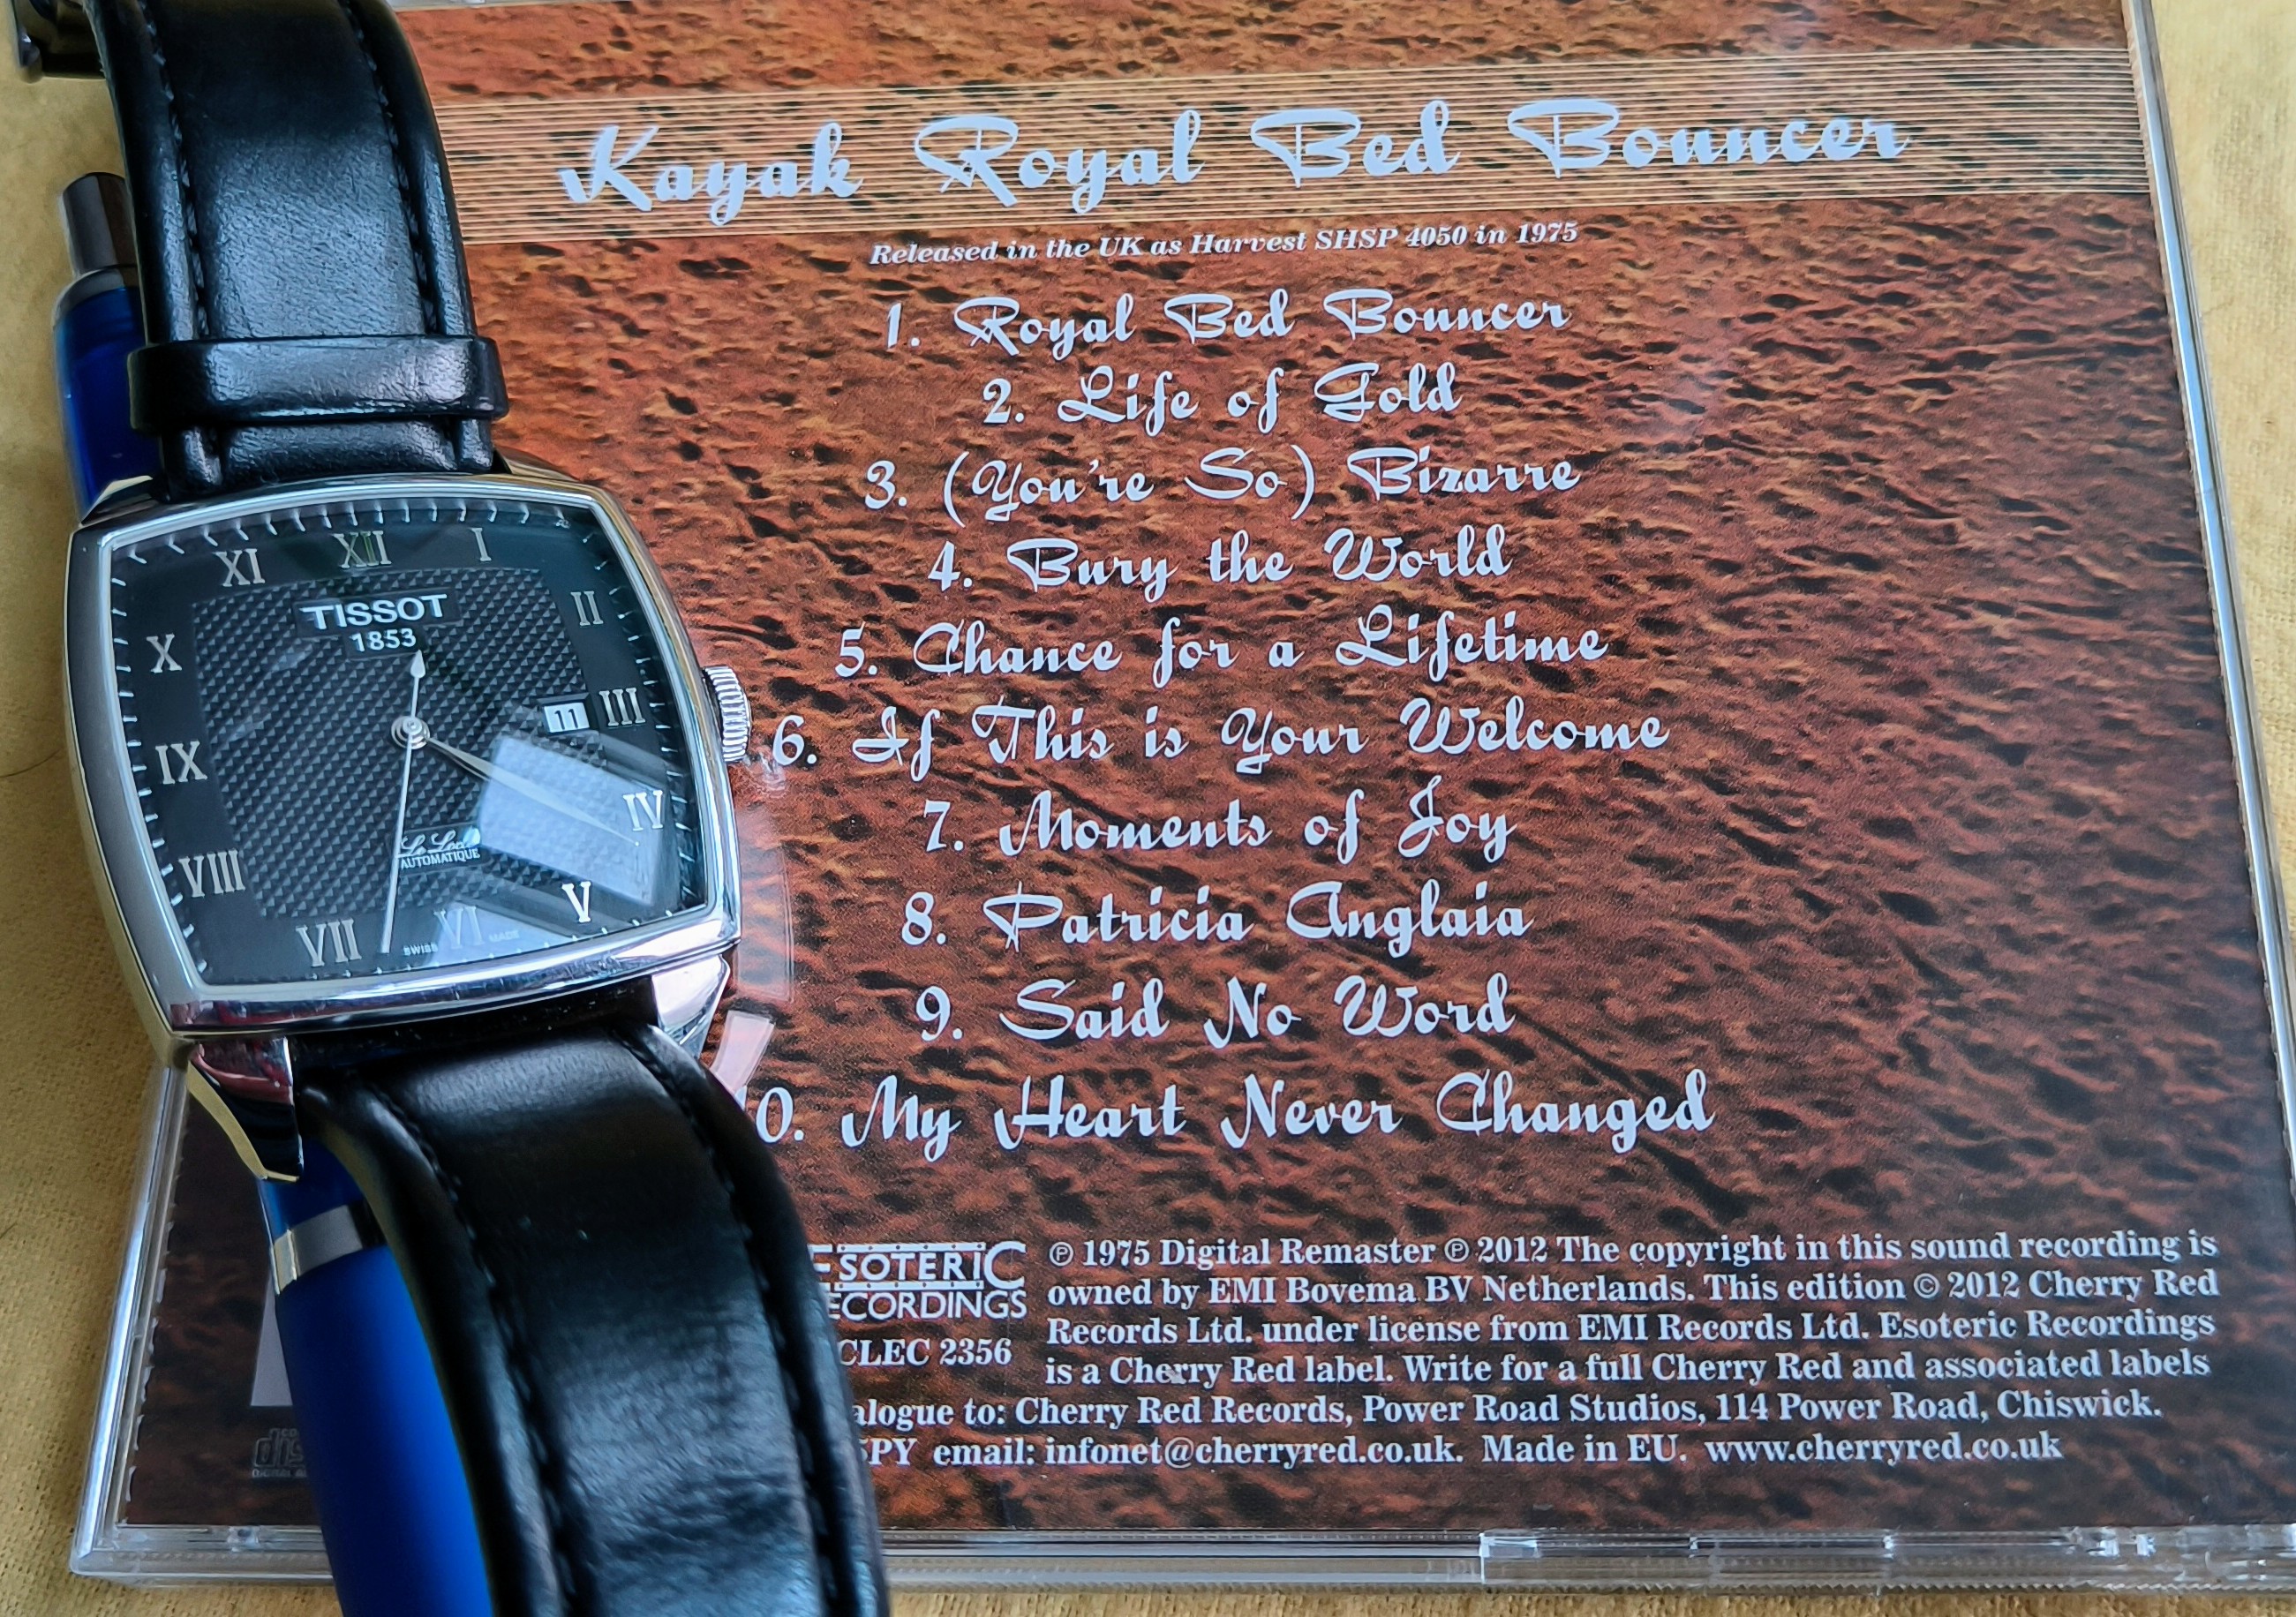 Kayak Royal Bed Bouncer
Released in the UK as Harvest SHSP 4050 in 1975
1. Royal Bed Bouncer
2. Life of Gold
3. (You're So) Bizarre
4. Bury the World
5. Chance for a Lifetime
6. If This is Your Welcome
7. Moments of Joy
8. Patricia Anglaia
9. Said No Word
0. My Heart Never Changed
XII
I
II
III
IV
V
VI
VII
VIII
IX
X
XI
TISSOT
1853
11
Le Locle
AUTOMATIQUE
SWISS MADE
ESOTERIC
ECORDINGS
CLEC 2356
℗ 1975 Digital Remaster ℗ 2012 The copyright in this sound recording is
owned by EMI Bovema BV Netherlands. This edition © 2012 Cherry Red
Records Ltd. under license from EMI Records Ltd. Esoteric Recordings
is a Cherry Red label. Write for a full Cherry Red and associated labels
alogue to: Cherry Red Records, Power Road Studios, 114 Power Road, Chiswick.
5PY email: infonet@cherryred.co.uk. Made in EU. www.cherryred.co.uk